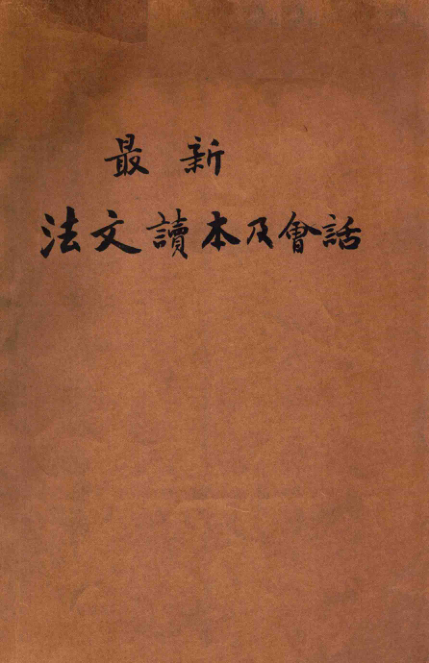 最新
法文讀本及會話